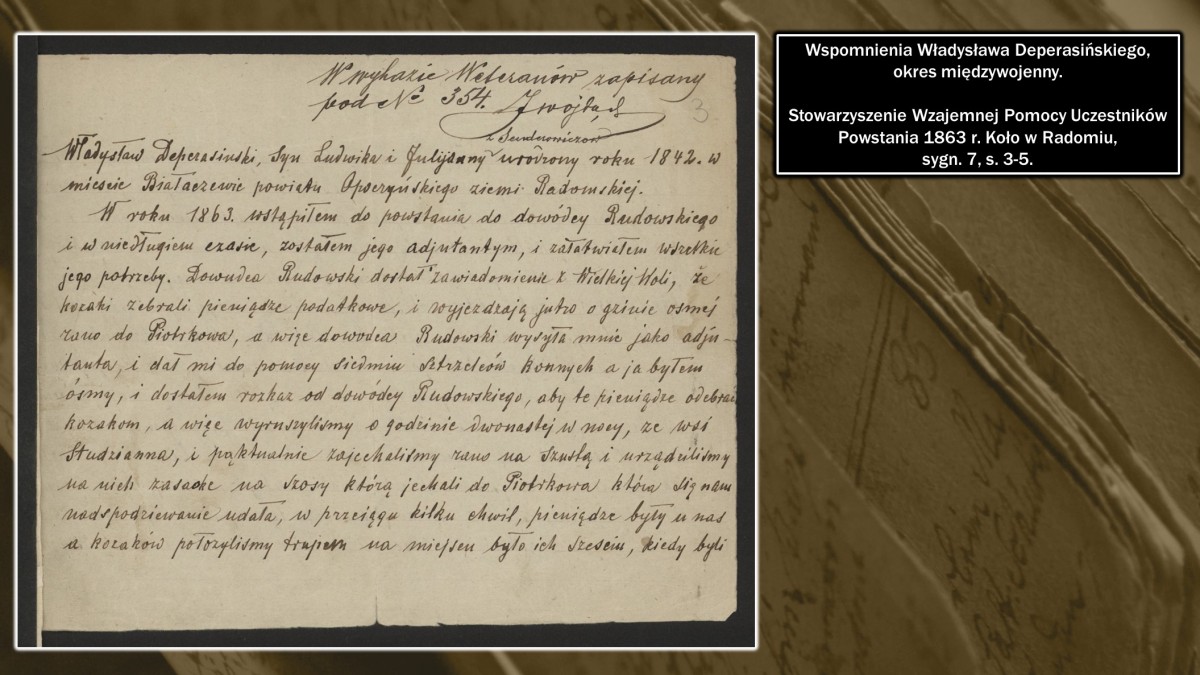 W wykazie Weteranów zapisany
pod № 354.
3
z Sandomiczów
Władysław Deperasinski, Syn Ludwika i Julijanny urodzony roku 1842. w
miescie Białaczewie powiatu Opoczyńskiego ziemi Radomskiej.
W roku 1863. wstąpiłem do powstania do dowódcy Rudowskiego
i w niedługiem czasie, zostałem jego adjutantym, i załatwiałem wszelkie
jego potrzeby. Dowudca Rudowski dostał zawiadomienie z Wielkiej Woli, że
kozaki zebrali pieniądze podatkowe, i wyjezdzają jutro o gzinie osmej
rano do Piotrkowa, a więc dowodca Rudowski wysyła mnie jako adju-
tanta, i dał mi do pomocy siedmiu Sztrzelców konnych a ja byłem
ósmy, i dostałem rozkaz od dowódcy Rudowskiego, aby te pieniądze odebrać
kozakom, a więc wyruszylismy o godzinie dwonastej w nocy, ze wsi
Studzianna, i pąktualnie zajechalismy rano na szustą i urządzilismy
na nich zasadzke na szosy którą jechali do Piotrkowa która się nam
nadspodziewanie udała, w przeciągu kilku chwil, pieniądze były u nas
a kozaków położylismy trupem na miejscu było ich szesciu, kiedy byli
Wspomnienia Władysława Deperasińskiego,
okres międzywojenny.
Stowarzyszenie Wzajemnej Pomocy Uczestników
Powstania 1863 r. Koło w Radomiu,
sygn. 7, s. 3-5.